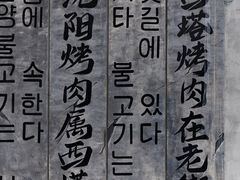 양불고기는
에 속한다
阳烤肉属西
타 불고기는
길에 있다
塔烤肉在老